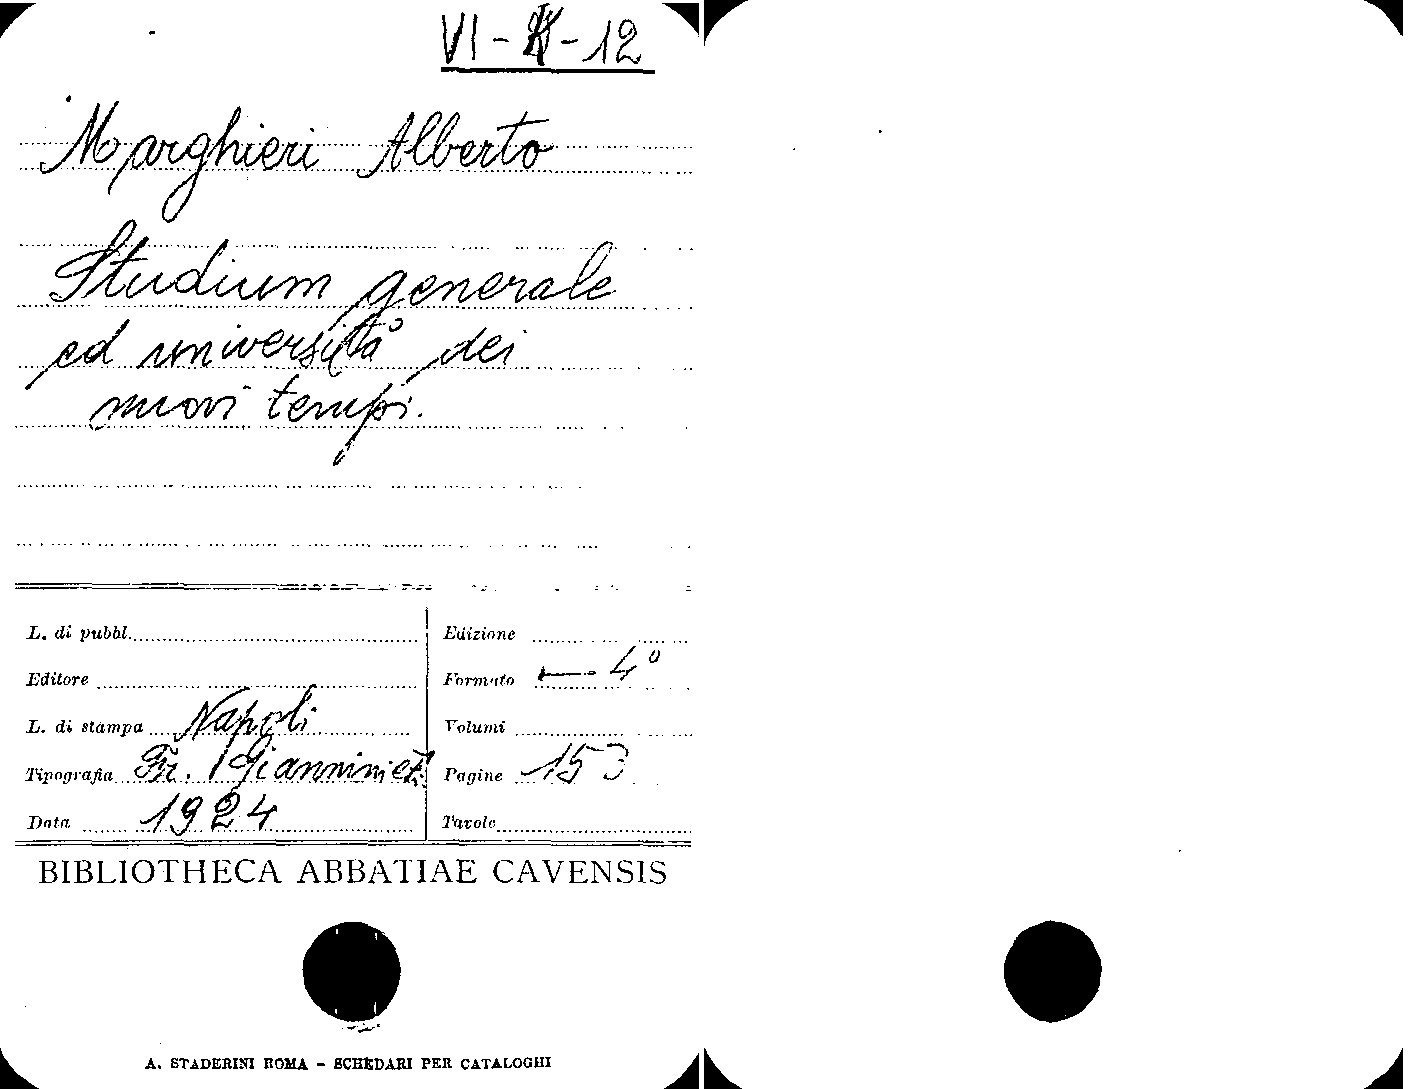 VI - K - 12
Marghieri Alberto
Studium generale
ed università dei
nuovi tempi.
L. di pubbl.
Editore
L. di stampa Napoli
Tipografia Fr. Giannini e f.
Data 1924
Edizione
Formato 4°
Volumi
Pagine 153
Tavole
BIBLIOTHECA ABBATIAE CAVENSIS
A. STADERINI ROMA - SCHEDARI PER CATALOGHI